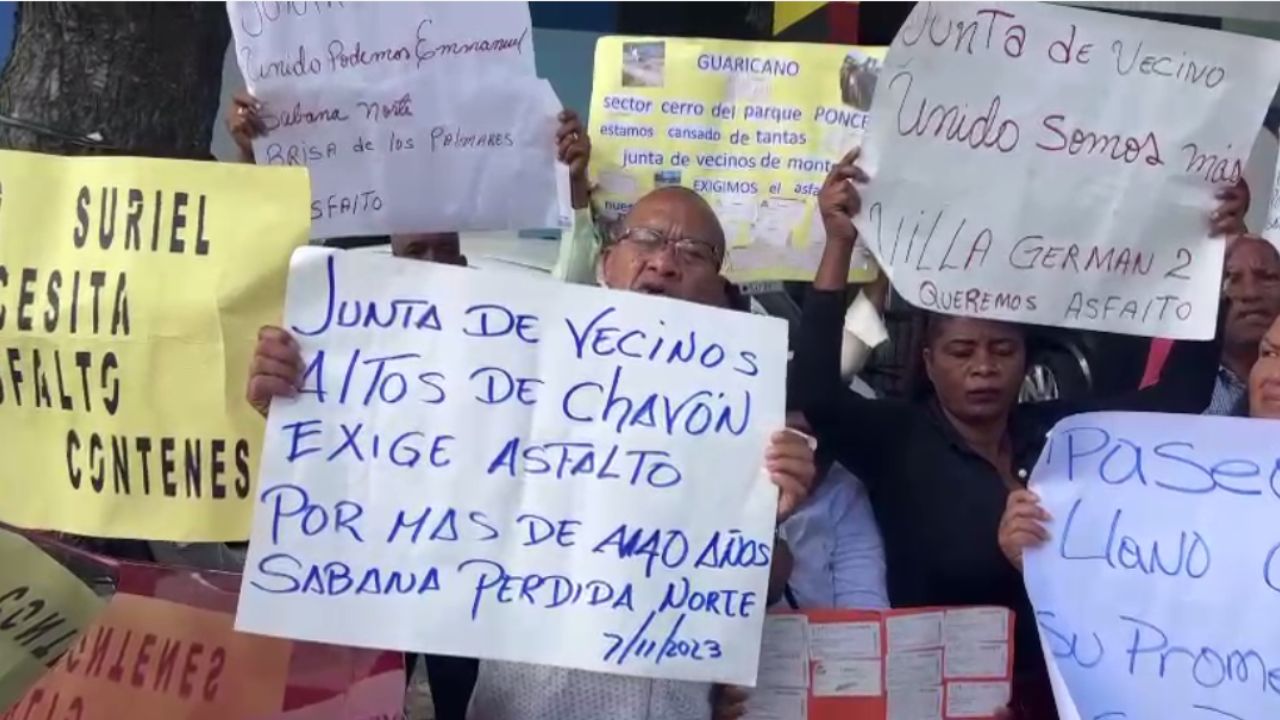 JUNTA
Unido Podemos Emmanuel
Sabana Norte
BRISA de los PALMARES
SFALTO
GUARICANO
sector cerro del parque PONCE
estamos cansado de tantas
junta de vecinos de mont
EXIGIMOS el asfa
JUNTA de VECINO
Unido Somos más
VILLA GERMAN 2
QUEREMOS ASFALTO
SURIEL
CESITA
SFALTO
CONTENES
JUNTA DE VECINOS
ALTOS DE CHAVÓN
EXIGE ASFALTO
POR MAS DE 40 AÑOS
SABANA PERDIDA NORTE
7/11/2023
Paseo
Llano
su Prome
CONTENES